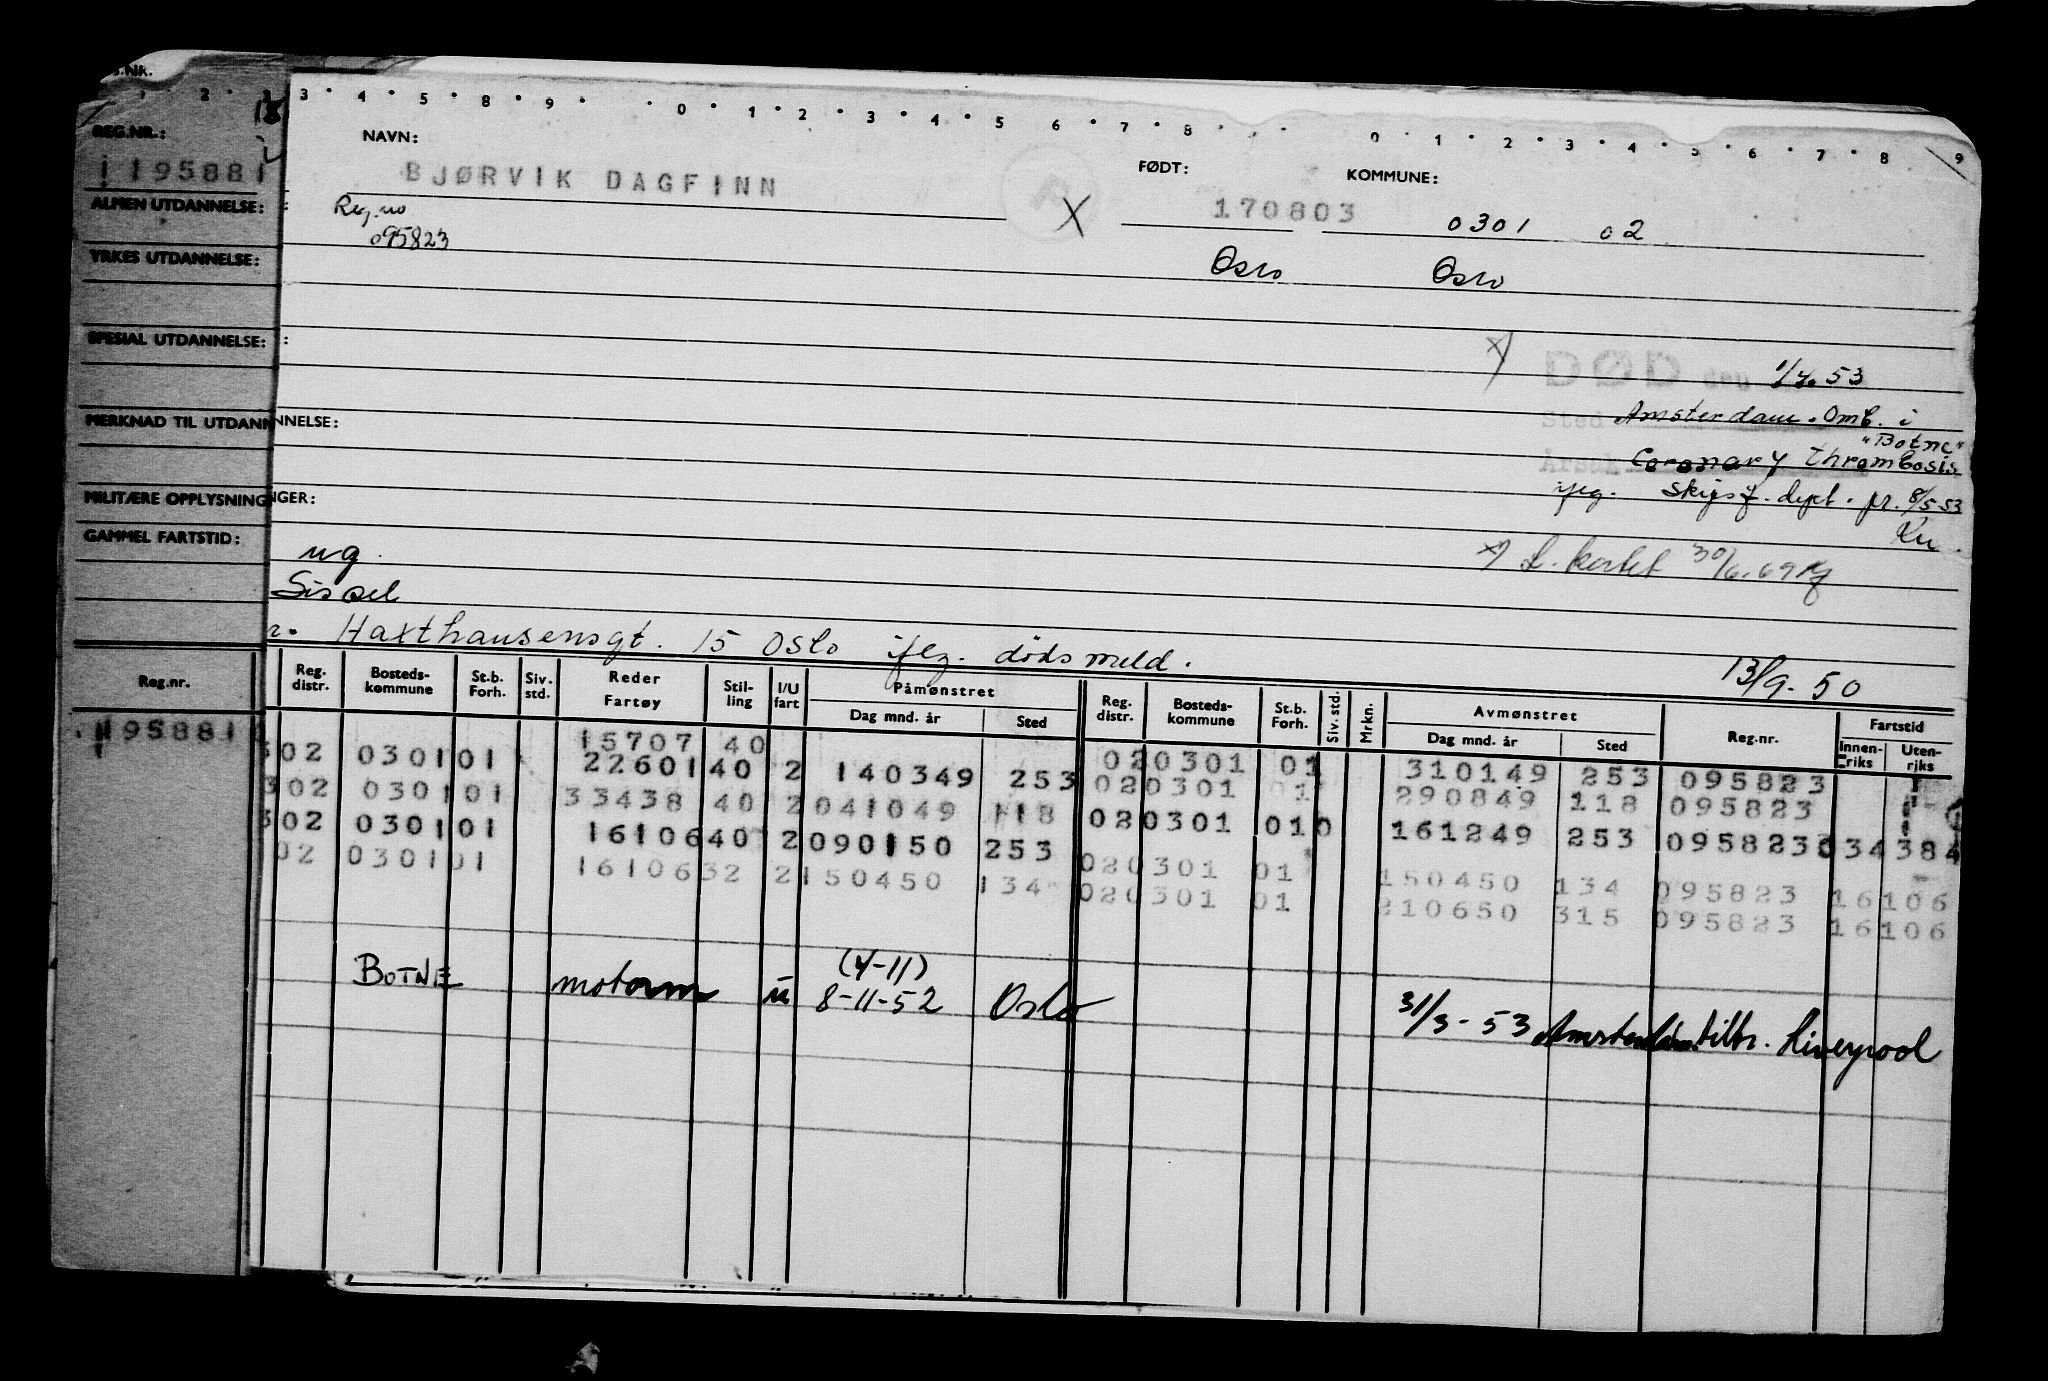 S.NR.
1 2 3 4 5 8 9 0 1 2 3 4 5 6 7 8 0 1 2 3 4 5 6 7 8 9
REG.NR.: NAVN: FØDT: KOMMUNE:
195881 BJØRVIK DAGFINN X 170803 0301 02
ALMEN UTDANNELSE: Reg.no
095823 Oslo Oslo
YRKES UTDANNELSE:
SPESIAL UTDANNELSE:
x) DØD den 1/4.53
MERKNAD TIL UTDANNELSE: Sted Amsterdam. Omb. i
"Botne"
Årsak Coronary thrombosis
MILITÆRE OPPLYSNINGER: iflg. Skipsf. dept. pr. 8/5-53
GAMMEL FARTSTID: ug. Ku.
x) L. kortet 30/6.69
Sissel
Haxthausensgt. 15 Oslo iflg. dødsmeld.
13/9-50
Reg.nr. Reg. distr. Bosteds-kommune St.b. Forh. Siv. std. Reder Fartøy Stil-ling I/U fart Påmønstret Dag mnd. år Sted Reg. distr. Bosteds-kommune St.b. Forh. Siv. std. Mrkn. Avmønstret Dag mnd. år Sted Reg.nr. Fartstid Innen-riks Uten-riks
195881 15707 40 020301 01 310149 253 095823
302 0301 01 22601 40 2 140349 253 020301 01 290849 118 095823
302 0301 01 33438 40 2 041049 118 020301 010 161249 253 095823 034 384
302 0301 01 16106 40 2 090150 253 020301 01 150450 134 095823 16106
02 0301 01 16106 32 2 150450 134 020301 01 210650 315 095823 16106
BOTNE motorm u (4-11)
8-11-52 Oslo 31/3-53 Amsterdam tilbr. Liverpool